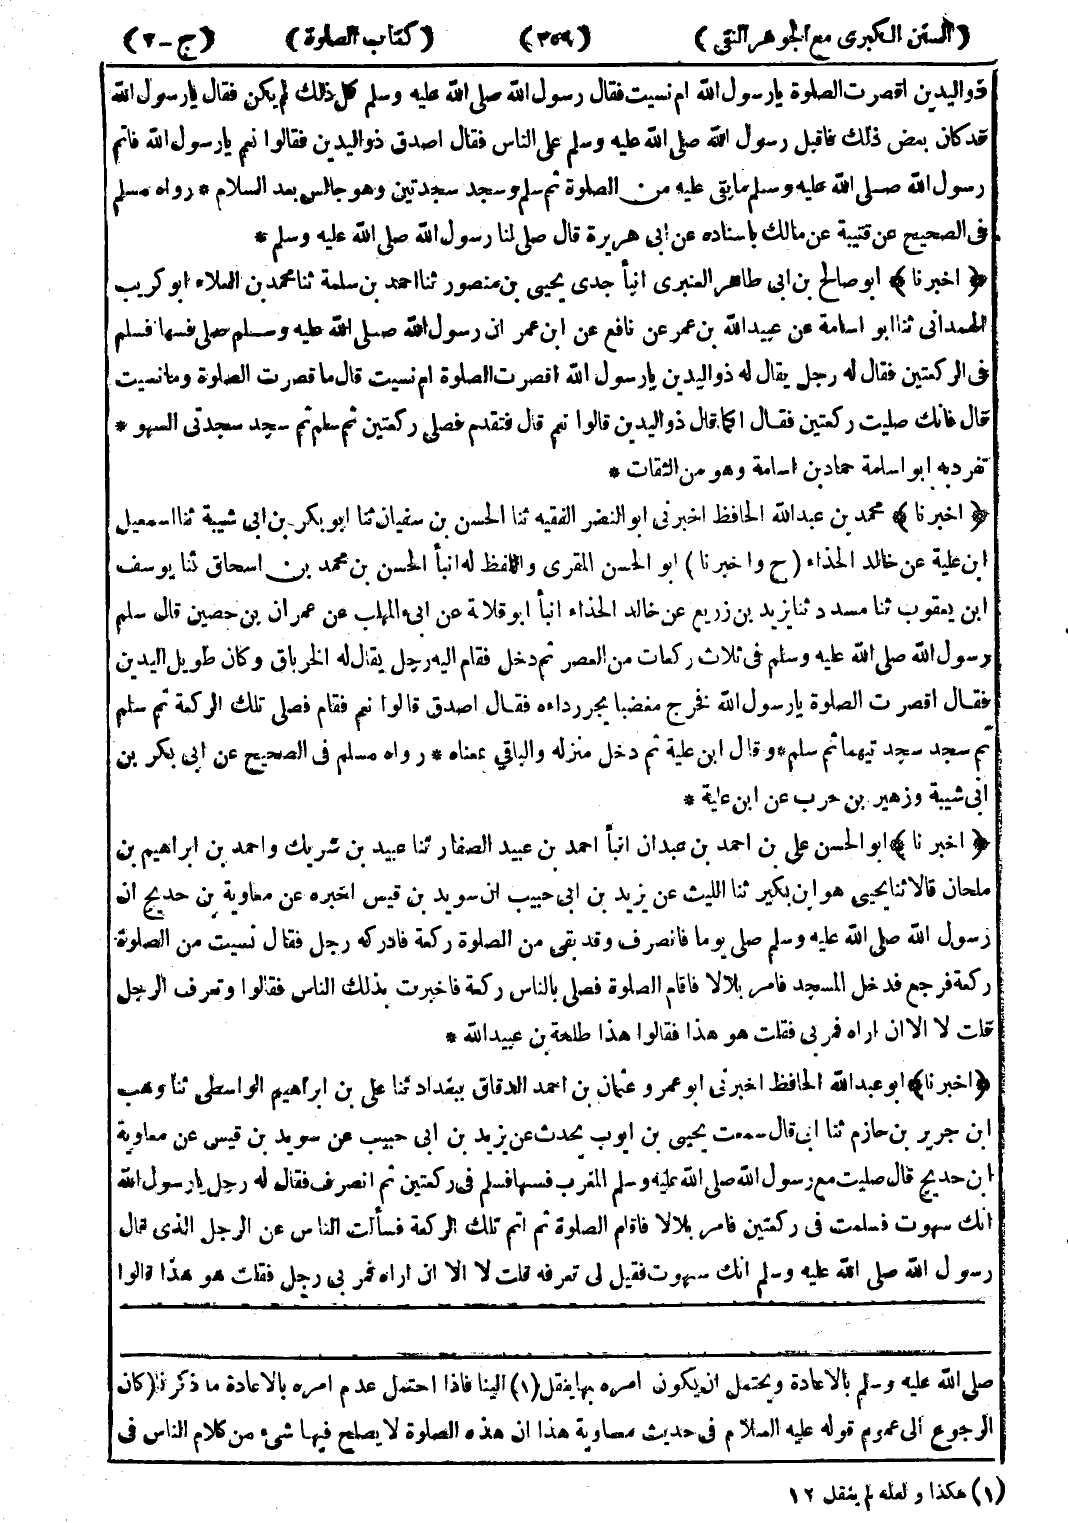 (السنن الكبرى مع الجوهر النقى) (٣٥٩) (كتاب الصلوة) (ج-٢)
ذو اليدين اقصرت الصلوة يا رسول الله ام نسيت فقال رسول الله صلى الله عليه وسلم كل ذلك لم يكن فقال يا رسول الله
قد كان بعض ذلك فاقبل رسول الله صلى الله عليه وسلم على الناس فقال اصدق ذو اليدين فقالوا نعم يا رسول الله فاتم
رسول الله صلى الله عليه وسلم ما بقى عليه من الصلوة ثم سلم وسجد سجدتين وهو جالس بعد السلام * رواه مسلم
فى الصحيح عن قتيبة عن مالك باسناده عن ابى هريرة قال صلى لنا رسول الله صلى الله عليه وسلم *
﴿ اخبرنا ﴾ ابو صالح بن ابى طاهر العنبرى انبأ جدى يحيى بن منصور ثنا احمد بن سلمة ثنا محمد بن العلاء ابو كريب
الهمدانى ثنا ابو اسامة عن عبيد الله بن عمر عن نافع عن ابن عمر ان رسول الله صلى الله عليه وسلم صلى فسها فسلم
فى الركعتين فقال له رجل يقال له ذو اليدين يا رسول الله اقصرت الصلوة ام نسيت قال ما قصرت الصلوة وما نسيت
قال فانك صليت ركعتين فقال اكما قال ذو اليدين قالوا نعم قال فتقدم فصلى ركعتين ثم سلم ثم سجد سجدتى السهو *
تفرد به ابو اسامة حماد بن اسامة وهو من الثقات *
﴿ اخبرنا ﴾ محمد بن عبد الله الحافظ اخبرنى ابو النضر الفقيه ثنا الحسن بن سفيان ثنا ابو بكر بن ابى شيبة ثنا اسمعيل
ابن علية عن خالد الحذاء (ح واخبرنا) ابو الحسن المقرى واللفظ له انبأ الحسن بن محمد بن اسحاق ثنا يوسف
ابن يعقوب ثنا مسدد ثنا يزيد بن زريع عن خالد الحذاء انبأ ابو قلابة عن ابى المهلب عن عمران بن حصين قال سلم
رسول الله صلى الله عليه وسلم فى ثلاث ركعات من العصر ثم دخل فقام اليه رجل يقال له الخرباق وكان طويل اليدين
فقال اقصرت الصلوة يا رسول الله فخرج مغضبا يجر رداءه فقال اصدق قالوا نعم فقام فصلى تلك الركعة ثم سلم
ثم سجد سجدتيهما ثم سلم * وقال ابن علية ثم دخل منزله والباقي بمعناه * رواه مسلم فى الصحيح عن ابى بكر بن
ابى شيبة وزهير بن حرب عن ابن علية *
﴿ اخبرنا ﴾ ابو الحسن على بن احمد بن عبدان انبأ احمد بن عبيد الصفار ثنا عبيد بن شريك واحمد بن ابراهيم بن
ملحان قالا ثنا يحيى هو ابن بكير ثنا الليث عن يزيد بن ابى حبيب ان سويد بن قيس اخبره عن معاوية بن حديج ان
رسول الله صلى الله عليه وسلم صلى يوما فانصرف وقد بقى من الصلوة ركعة فادركه رجل فقال نسيت من الصلوة
ركعة فرجع فدخل المسجد فامر بلالا فاقام الصلوة فصلى بالناس ركعة فاخبرت بذلك الناس فقالوا وتعرف الرجل
قلت لا الا ان اراه فمر بى فقلت هو هذا فقالوا هذا طلحة بن عبيد الله *
﴿ اخبرنا ﴾ ابو عبد الله الحافظ اخبرنى ابو عمرو عثمان بن احمد الدقاق ببغداد ثنا على بن ابراهيم الواسطى ثنا وهب
ابن جرير بن حازم ثنا ابى قال سمعت يحيى بن ايوب يحدث عن يزيد بن ابى حبيب عن سويد بن قيس عن معاوية
ابن حديج قال صليت مع رسول الله صلى الله عليه وسلم المغرب فسها فسلم فى ركعتين ثم انصرف فقال له رجل يا رسول الله
انك سهوت فسلمت فى ركعتين فامر بلالا فاقام الصلوة ثم اتم تلك الركعة فسألت الناس عن الرجل الذى قال
رسول الله صلى الله عليه وسلم انك سهوت فقيل لى تعرفه قلت لا الا ان اراه فمر بى رجل فقلت هو هذا قالوا
صلى الله عليه وسلم بالاعادة ويحتمل ان يكون امره بها ينقل (١) الينا فاذا احتمل عدم امره بالاعادة ما ذكرنا (كان
الرجوع الى عموم قوله عليه السلام فى حديث معاوية هذا ان هذه الصلوة لا يصلح فيها شىء من كلام الناس فى
(١) هكذا ولعله لم ينقل ١٢